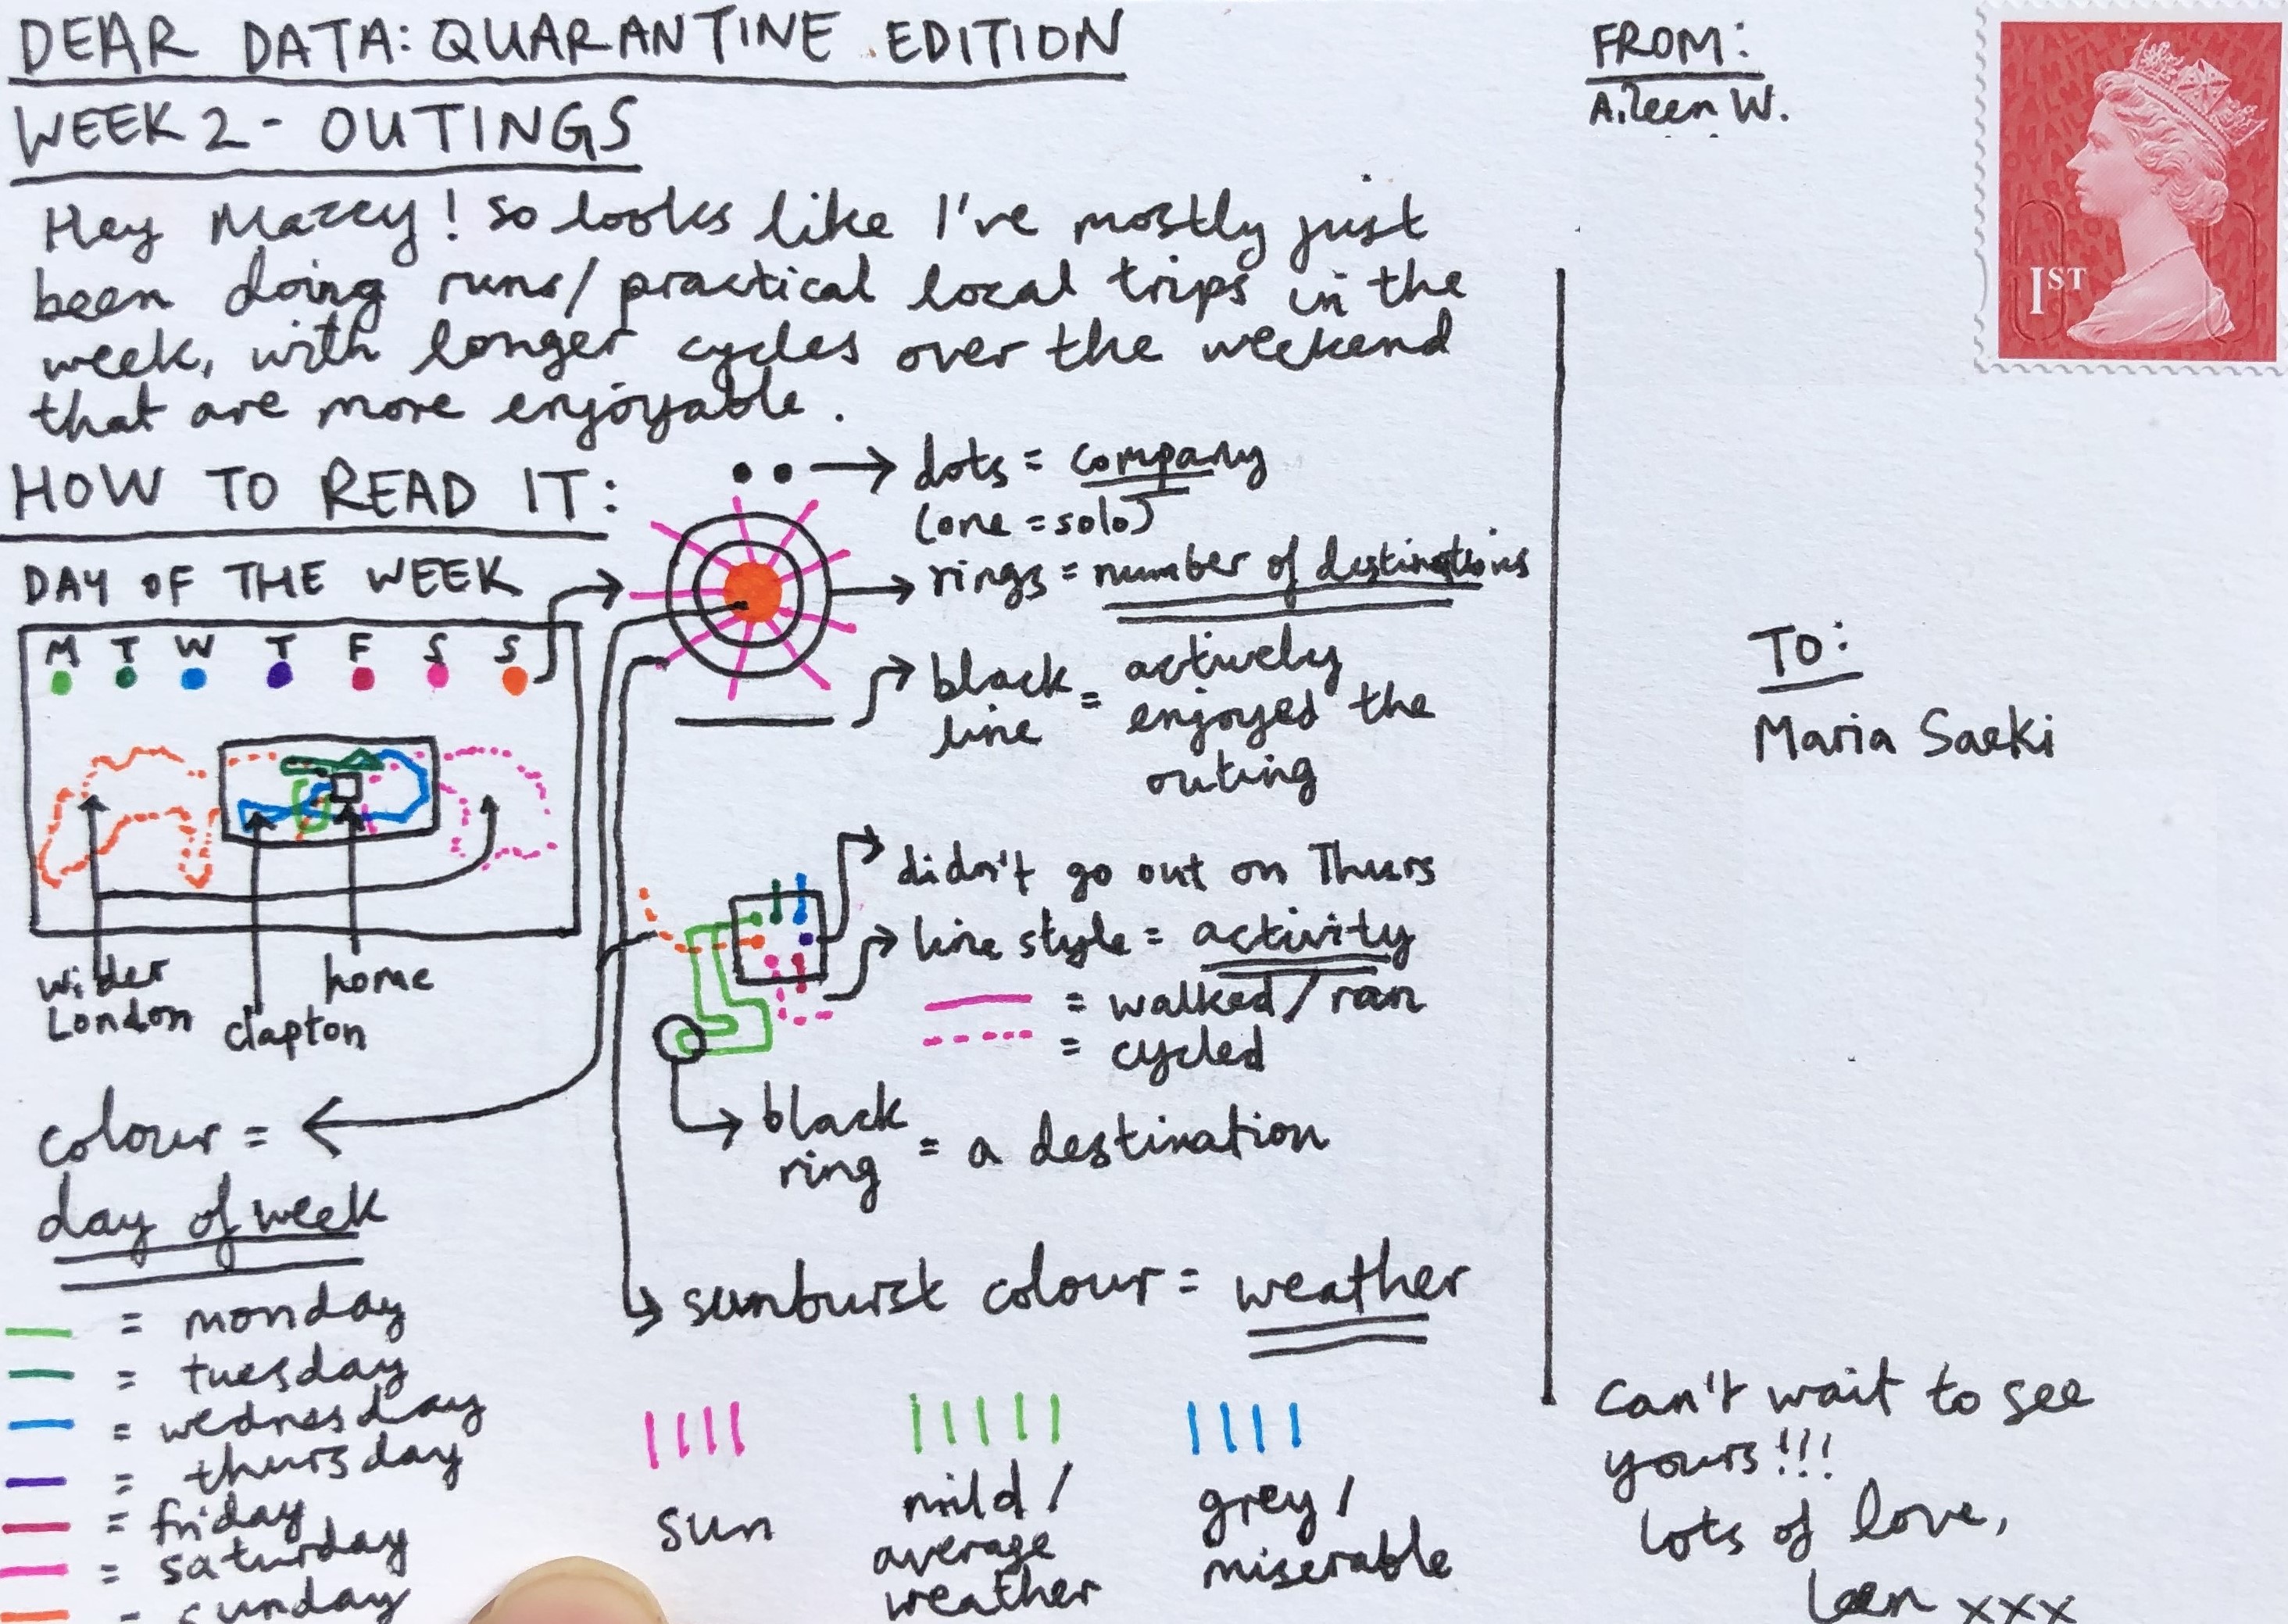 DEAR DATA: QUARANTINE EDITION
WEEK 2 - OUTINGS
Hey Mazzy! So looks like I've mostly just
been doing runs/practical local trips in the
week, with longer cycles over the weekend
that are more enjoyable.
HOW TO READ IT:
DAY OF THE WEEK
M T W T F S S
wider
London
clapton
home
colour =
day of week
= monday
= tuesday
= wednesday
= thursday
= friday
= saturday
= sunday
dots = company
(one = solo)
rings = number of destinations
black line = actively
enjoyed the
outing
didn't go out on Thurs
line style = activity
= walked/ran
= cycled
black
ring = a destination
sunburst colour = weather
sun
mild/
average
weather
grey/
miserable
FROM:
Aileen W.
1ST
TO:
Maria Saeki
Can't wait to see
yours!!!
lots of love,
xxx